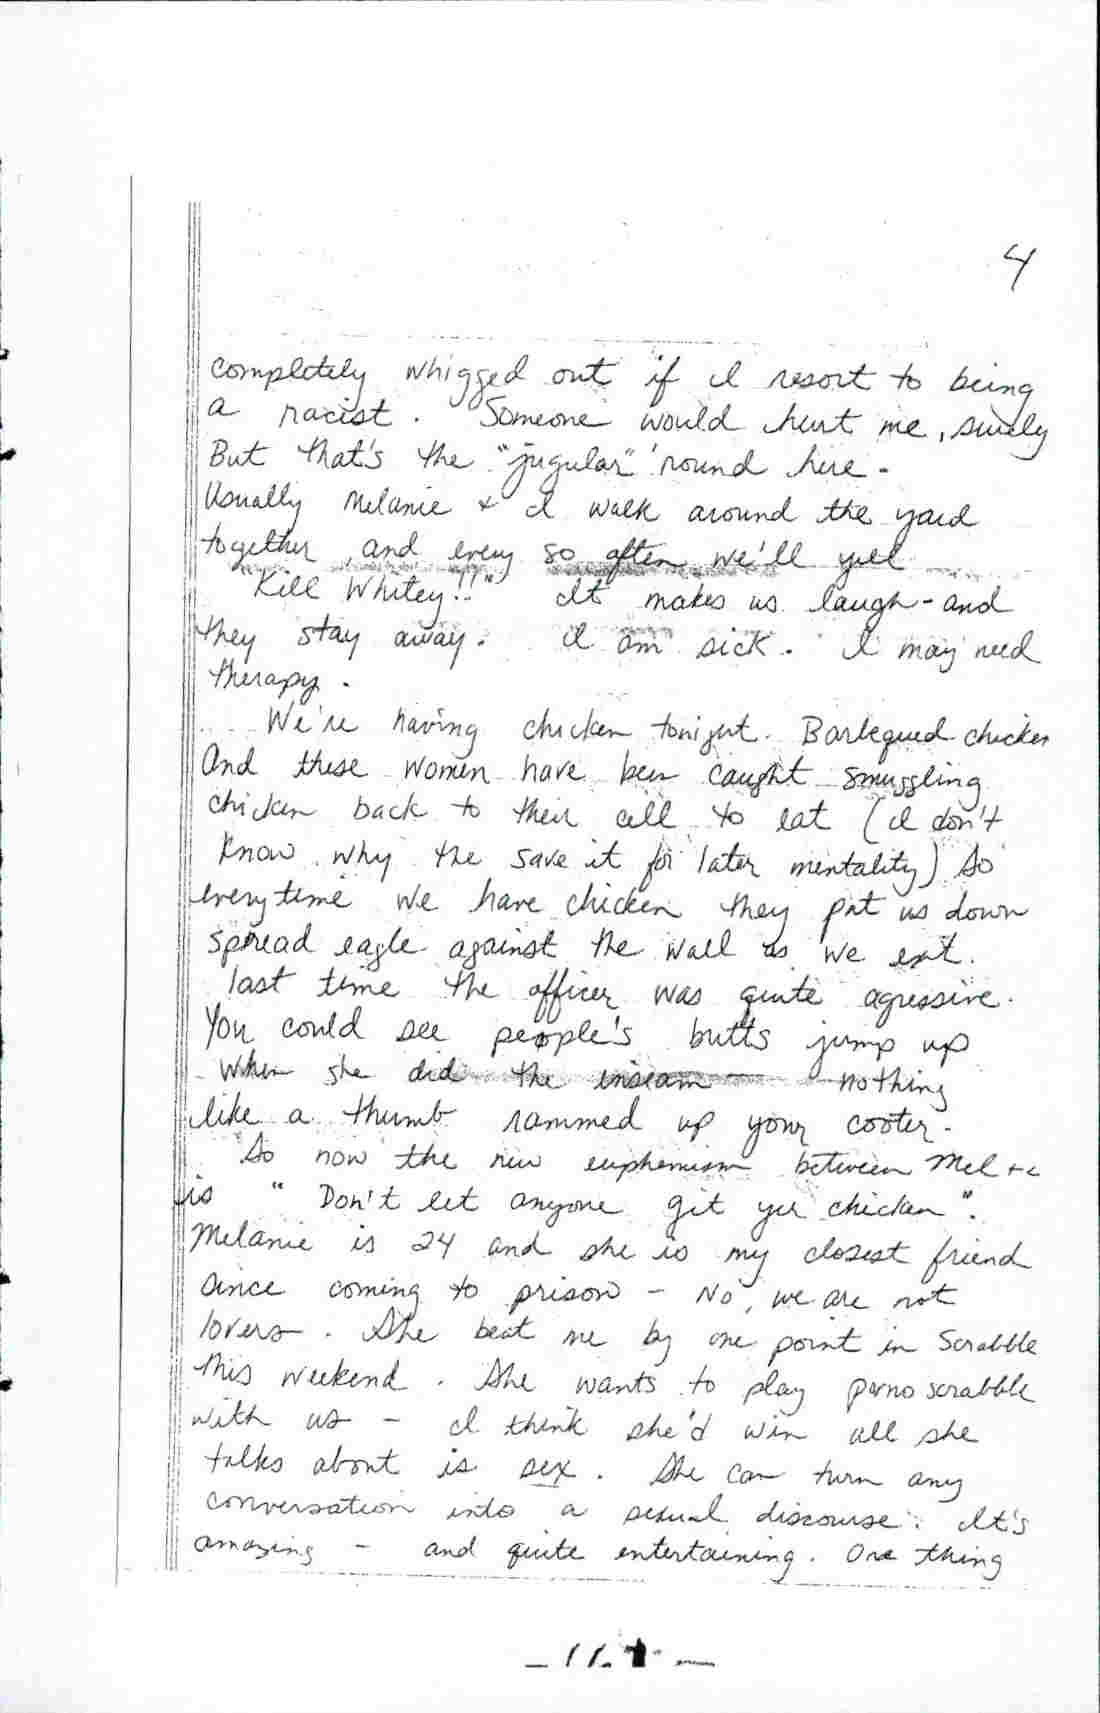 4
completely whigged out if I resort to being
a racist. Someone would hurt me, surely
But that's the "jugular" 'round here.
Usually Melanie & I walk around the yard
together, and every so often we'll yell
"Kill Whitey!!" It makes us laugh - and
they stay away. I am sick. I may need
therapy.
We're having chicken tonight. Barbequed chicken
And these women have been caught smuggling
chicken back to their cell to eat (I don't
know why the save it for later mentality) So
everytime we have chicken they pat us down
spread eagle against the wall as we exit.
last time the officer was quite agressive.
You could see people's butts jump up
when she did the inseam — nothing
like a thumb rammed up your cooter.
So now the new euphemism between Mel + I
is "Don't let anyone git yer chicken".
Melanie is 24 and she is my closest friend
since coming to prison - No, we are not
lovers. She beat me by one point in Scrabble
this weekend. She wants to play porno scrabble
with us - I think she'd win all she
talks about is sex. She can turn any
conversation into a sexual discourse. It's
amazing - and quite entertaining. One thing